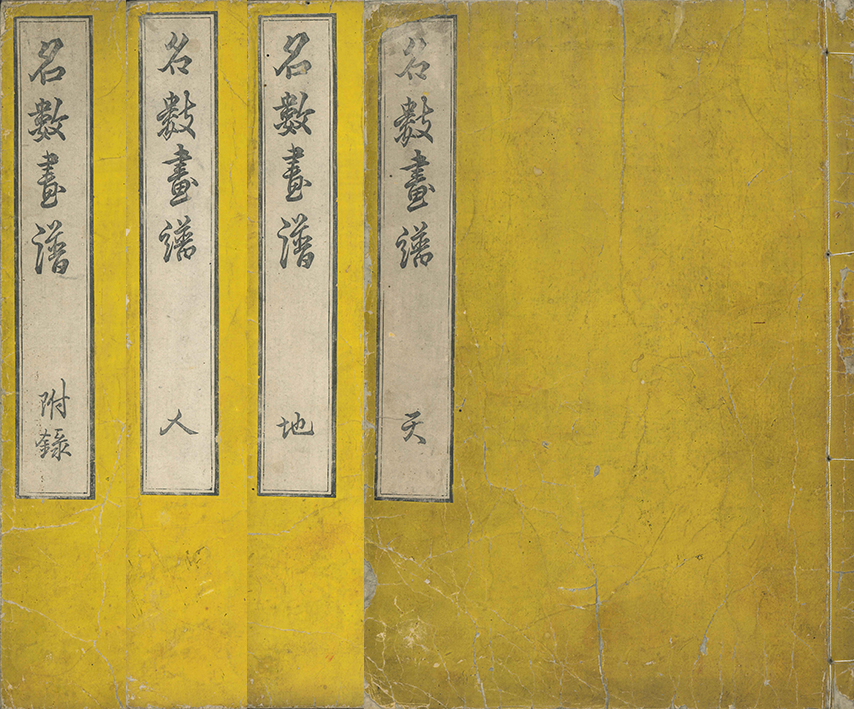 名數畫譜 天
名數畫譜 地
名數畫譜 人
名數畫譜 附錄